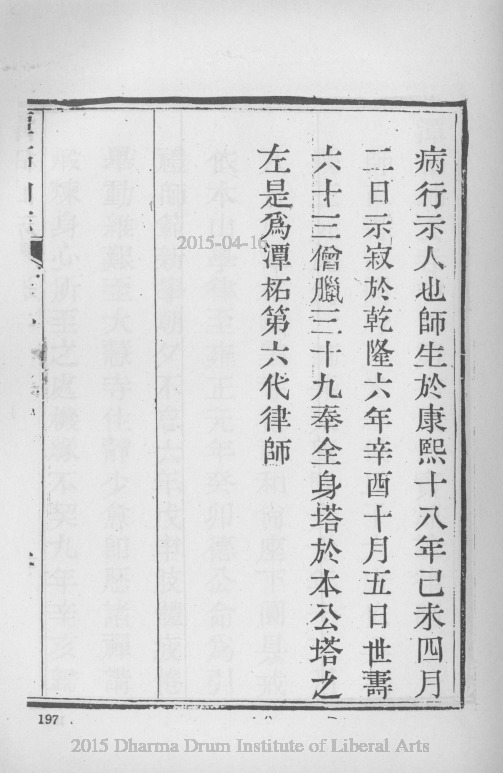 病行示人也師生於康熙十八年己未四月
二日示寂於乾隆六年辛酉十月五日世壽
六十三僧臘三十九奉全身塔於本公塔之
左是爲潭柘第六代律師
2015-04-16
197
2015 Dharma Drum Institute of Liberal Arts